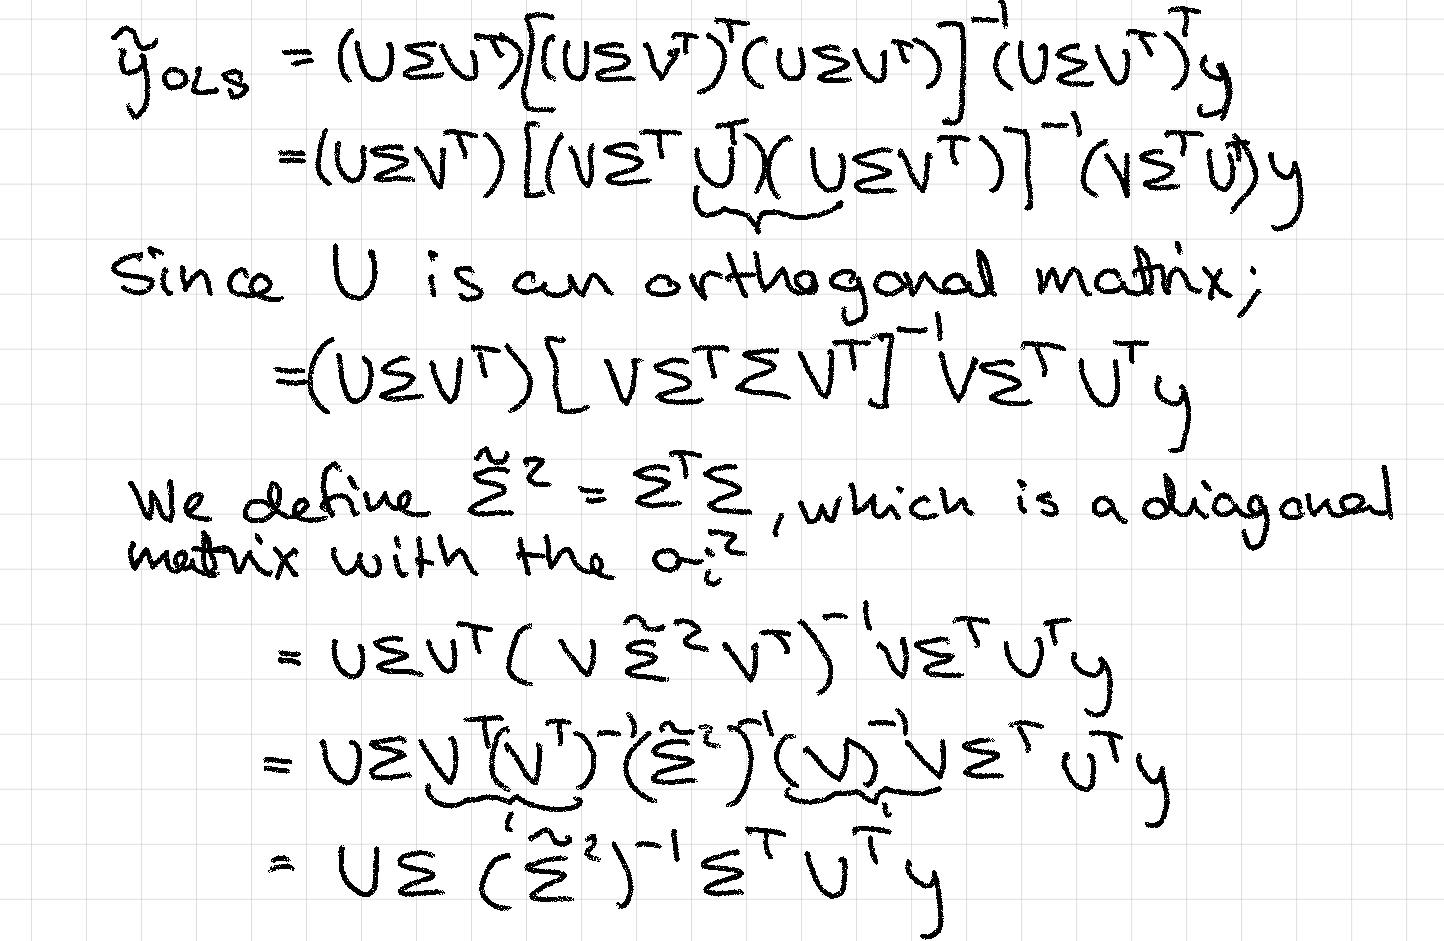 ỹ_OLS = (UΣVᵀ)[(UΣVᵀ)ᵀ(UΣVᵀ)]⁻¹(UΣVᵀ)ᵀy
=(UΣVᵀ)[(VΣᵀUᵀ)(UΣVᵀ)]⁻¹(VΣᵀUᵀ)y
Since U is an orthogonal matrix;
=(UΣVᵀ)[VΣᵀΣVᵀ]⁻¹VΣᵀUᵀy
We define Σ̃² = ΣᵀΣ, which is a diagonal
matrix with the σᵢ²
= UΣVᵀ(VΣ̃²Vᵀ)⁻¹VΣᵀUᵀy
= UΣVᵀ(Vᵀ)⁻¹(Σ̃²)⁻¹(V)⁻¹VΣᵀUᵀy
= UΣ(Σ̃²)⁻¹ΣᵀUᵀy